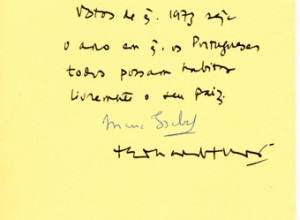 Votos de q. 1973 seja
o ano em q. os Portugueses
todos possam habitar
livremente o seu paiz.
Maria Isabel